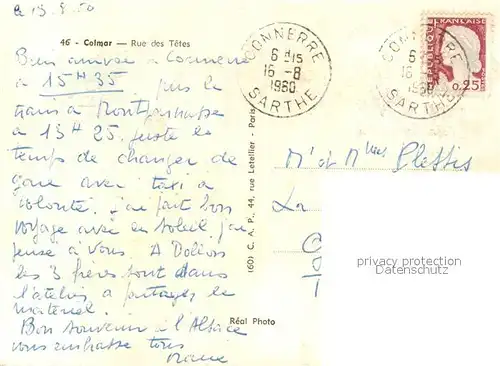 46 - Colmar — Rue des Têtes
Bien arrivée à Connerré
à 15H35 pris le
train à Montparnasse
à 13H25 juste le
temps de changer de
gare avec taxi à
volonté. j'ai fait bon
voyage avec un soleil j'ai
pensé à vous. A
les 3 frères sont dans
l'atelier à partager le
matériel.
Bon souvenir d l'Alsace
vous embrasse tous
CONNERRE
6 H15
16 -8
1960
SARTHE
CONNERRE
6
16
SARTHE
REPUBLIQUE FRANÇAISE
0,25
(60) C. A. P., 44, rue Letellier - Paris
Réal Photo
M' et Mme Plessis
La
privacy protection
Datenschutz